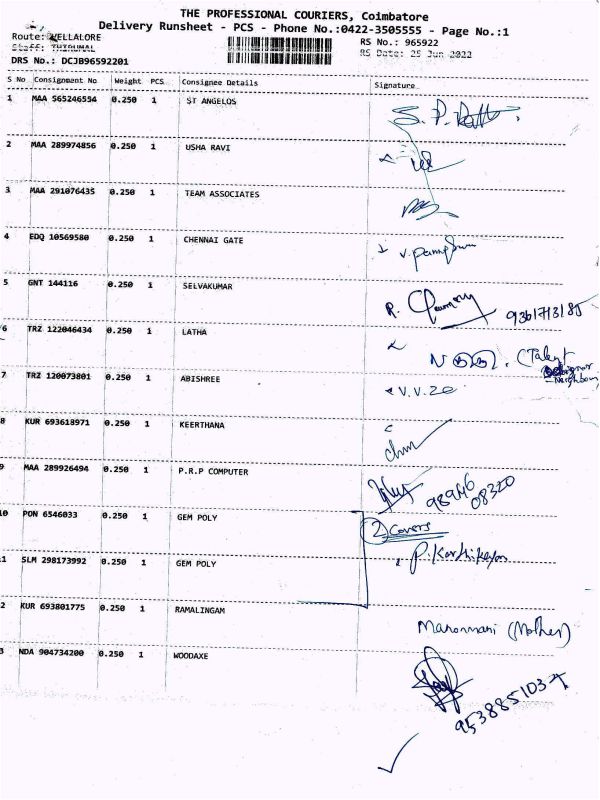 THE PROFESSIONAL COURIERS, Coimbatore
Delivery Runsheet - PCS - Phone No.:0422-3505555 - Page No.:1
Route: VELLALORE RS No.: 965922
Staff: THIRUMAL RS Date: 25 Jun 2022
DRS No.: DCJB96592201
S No Consignment No Weight PCS Consignee Details Signature
1 MAA 565246554 0.250 1 ST ANGELOS
2 MAA 289974856 0.250 1 USHA RAVI
3 MAA 291076435 0.250 1 TEAM ASSOCIATES
4 EDQ 10569580 0.250 1 CHENNAI GATE
5 GNT 144116 0.250 1 SELVAKUMAR
6 TRZ 122046434 0.250 1 LATHA
7 TRZ 120073801 0.250 1 ABISHREE
8 KUR 693618971 0.250 1 KEERTHANA
9 MAA 289926494 0.250 1 P.R.P COMPUTER
10 PON 6546033 0.250 1 GEM POLY 2 Covers
1 SLM 298173992 0.250 1 GEM POLY P. Karthikeyan
2 KUR 693801775 0.250 1 RAMALINGAM Manonmani (Mother)
3 NDA 904734200 0.250 1 WOODAXE
9538851037